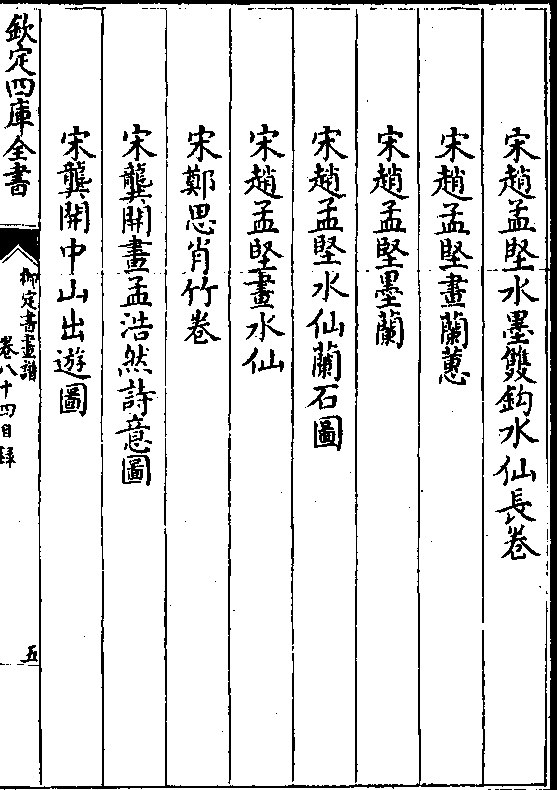 宋趙孟堅水墨雙鈎水仙長卷
宋趙孟堅畫蘭蕙
宋趙孟堅墨蘭
宋趙孟堅水仙蘭石圖
宋趙孟堅畫水仙
宋鄭思肖竹卷
宋龔開畫孟浩然詩意圖
宋龔開中山出遊圖
欽定四庫全書
御定書畫譜
卷八十四目錄
五